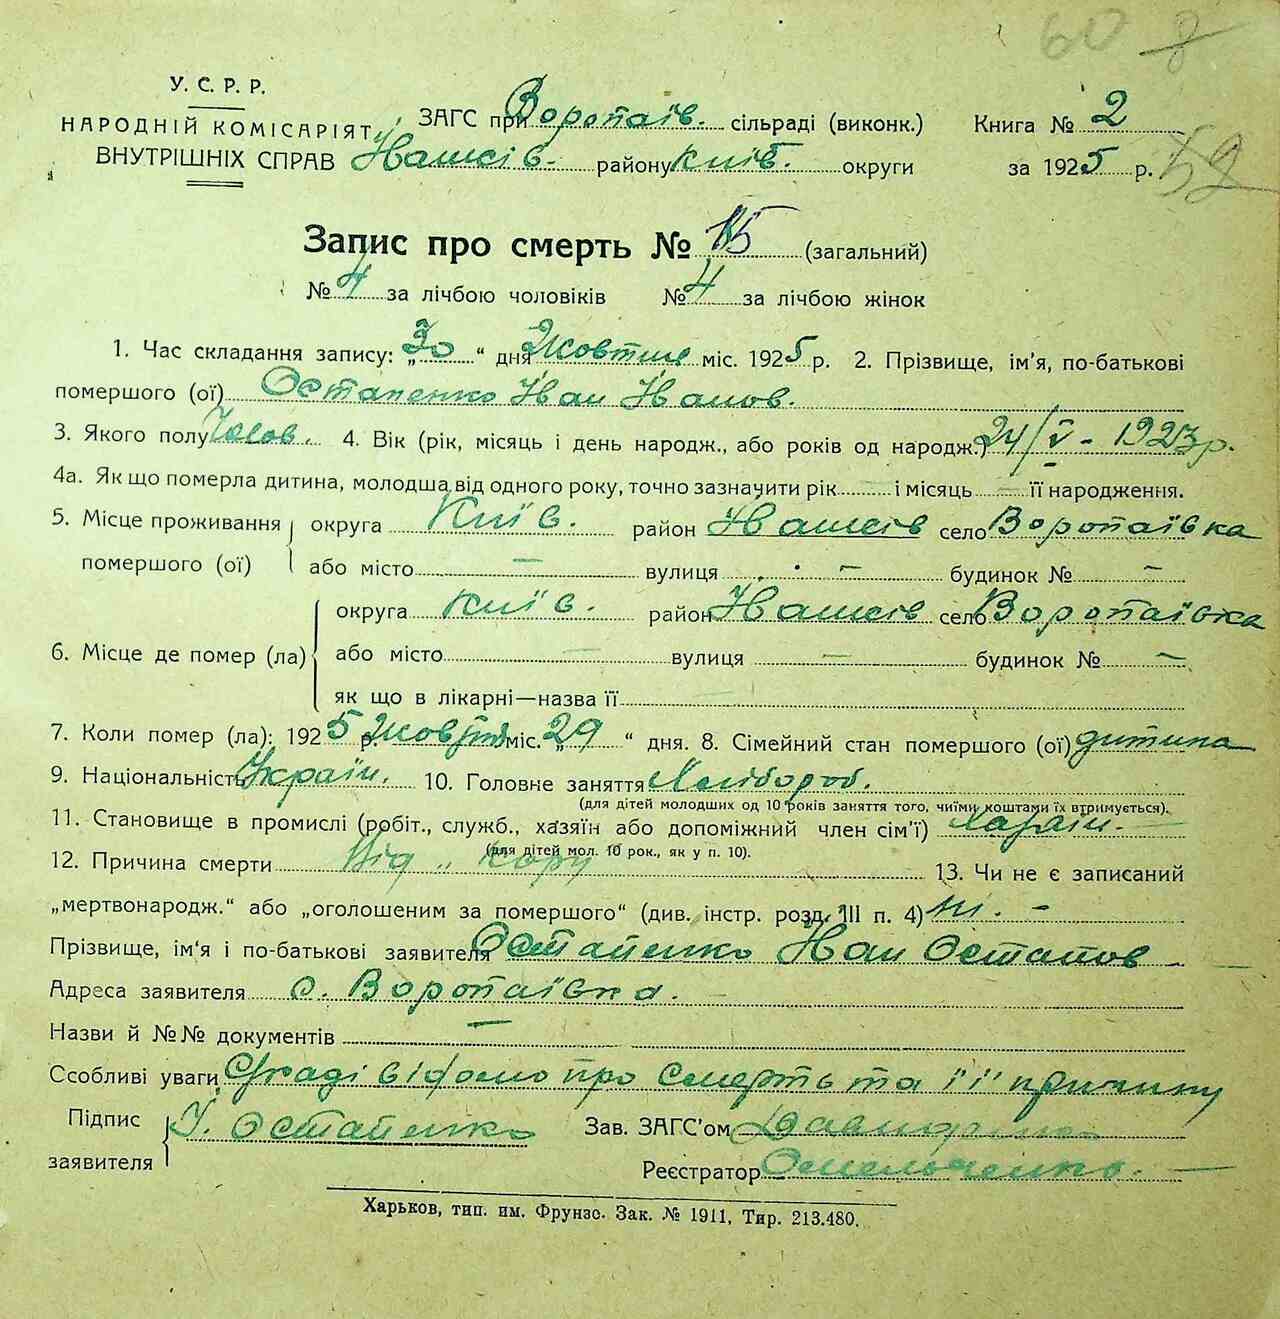 60 8
У. С. Р. Р.
НАРОДНІЙ КОМІСАРІЯТ ЗАГС при Воропаїв. сільраді (виконк.) Книга № 2
ВНУТРІШНІХ СПРАВ району Київ. округи за 1925 р. 52
Запис про смерть № 15 (загальний)
№ 4 за лічбою чоловіків № 4 за лічбою жінок
1. Час складання запису: „30“ дня Жовтня міс. 1925 р. 2. Прізвище, ім’я, по-батькові
помершого (ої) Остапенко Іван Іванов.
3. Якого полу Чолов. 4. Вік (рік, місяць і день народж., або років од народж.) 24/V - 1923 р.
4а. Як що померла дитина, молодша від одного року, точно зазначити рік — і місяць — її народження.
5. Місце проживання округа Київ. район село Воропаївка
помершого (ої) або місто — вулиця — будинок № —
округа Київ. район село Воропаївка
6. Місце де помер (ла) або місто — вулиця — будинок № —
як що в лікарні—назва її
7. Коли помер (ла): 1925 р. Жовтня міс. „29“ дня. 8. Сімейний стан помершого (ої) дитина
9. Національність Україн. 10. Головне заняття Хлібороб.
(для дітей молодших од 10 років заняття того, чиїми коштами їх втримується).
11. Становище в промислі (робіт., служб., хазяїн або допоміжний член сім’ї) Хазяїн. —
(для дітей мол. 10 рок., як у п. 10).
12. Причина смерти Від „ кору 13. Чи не є записаний
„мертвонародж.“ або „оголошеним за помершого“ (див. інстр. розд. III п. 4) ні. -
Прізвище, ім’я і по-батькові заявителя Остапенко Іван Остапов
Адреса заявителя с. Воропаївка.
Назви й №№ документів —
Єсобливі уваги Сраді відомо про смерть та її причину
Підпис заявителя І. Остапенко Зав. ЗАГС’ом
Реєстратор Омельченко.
Харьков, тип. им. Фрунзе. Зак. № 1911, Тир. 213.480.